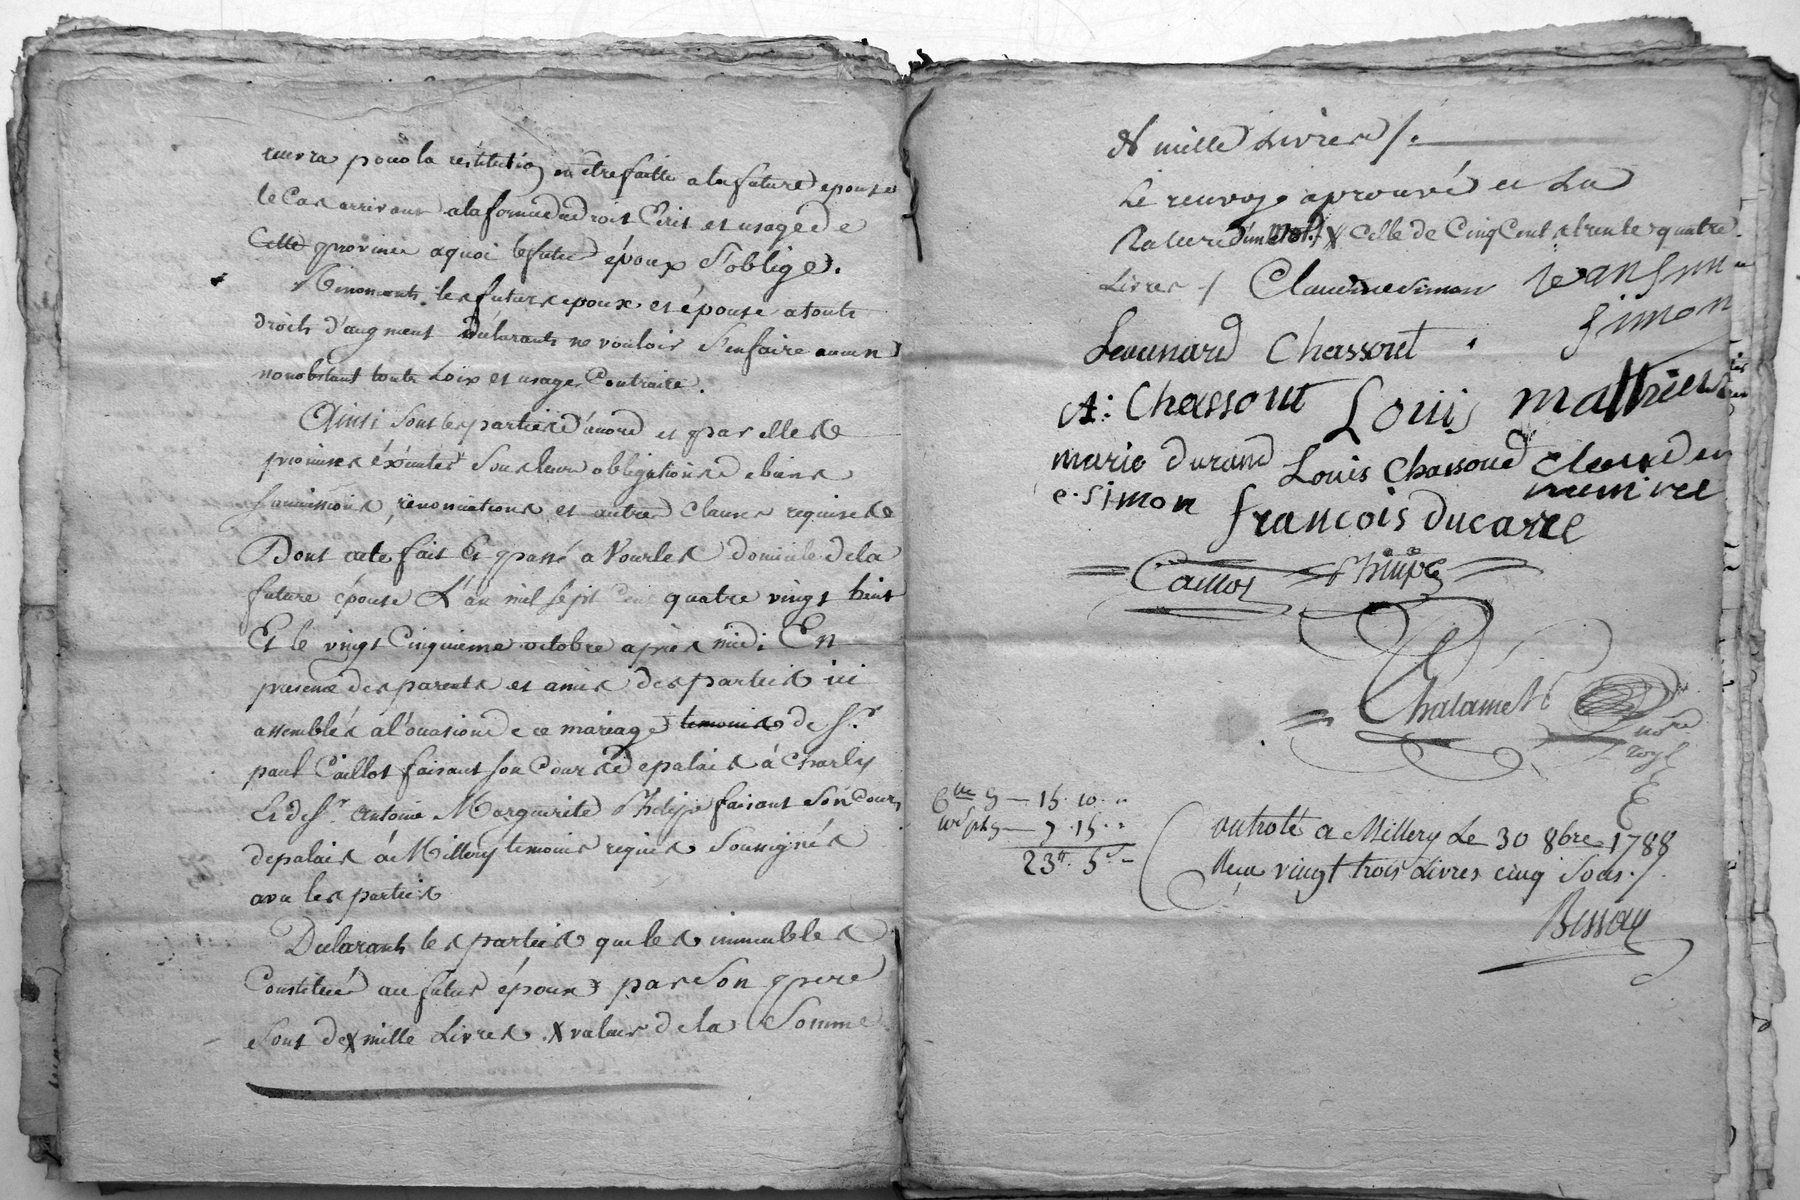 euvra pour la restitution en être faitte a la future epouse
le Cas arrivant a la forme du droit Ecrit et usage de
Cette province a quoi le futur époux s'oblige.
Renoncants les futurs epoux et épouse a touts
droits d'augment declarants ne vouloir s'en faire aucun
nonobstant touts Loix et usages Contraire.
Ainsi sont les parties d'acord et par elles
promis éxécuter sous leurs obligations de biens
soumissions, renonciations et autres clauses requises
Dont acte fait et passé a Vourles domicile de la
future épouse L'an mil sept Cent quatre vingt huit
Et le vingt Cinquieme octobre après midi En
presence des parents et amis des parties ici
assemblés a l'ocasion de ce mariage temoins de Sr.
paul Caillot faisant son Cours de palais à Charly
Et de Sr. antoine Marguerite Phelip faisant son Cours
de palais à Millery temoins requis Soussignés
avec les parties
Declarants les parties que les immeubles
Constitués au futur époux par son pere
sont de X mille Livres X valeur de la Somme
X mille Livres /.
Le renvoy aprouvé et La
rature d'un mot / X Celle de Cinq Cent trente quatre
Livres / Claudine Simon jean
simon
Leaunard Chassout
A: Chassout Louis mathieu
marie durand Louis Chassoud
e. simon
francois ducarre
Caillot Phelip
Chalamel
nore
royl
15. 10.
7. 15.
23tt. 5s.
Controlé a Millery Le 30 8bre 1788
Reçu vingt trois Livres cinq Sous./.
Bissay